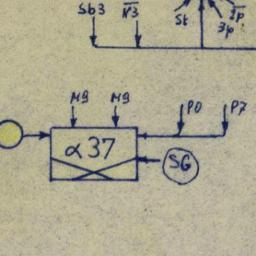 Sb3 N3 St 3p 2p
M9 M9 P0 P7
α37
SG